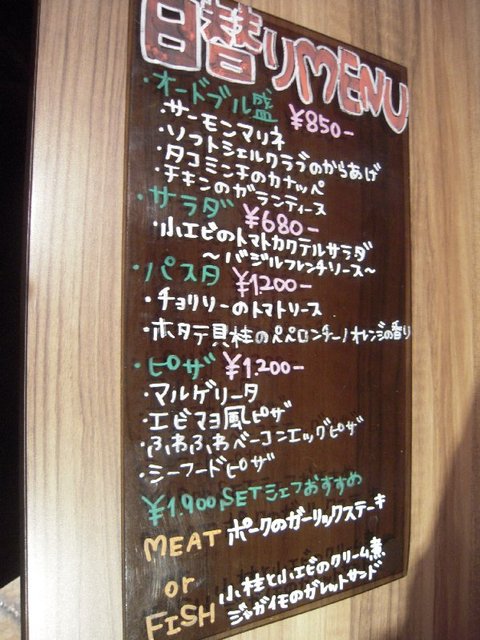 日替りMENU
・オードブル盛 ¥850-
・サーモンマリネ
・ソフトシェルクラブのからあげ
・タコミンチのカナッペ
・チキンのガランティーヌ
・サラダ ¥680-
・小エビのトマトカクテルサラダ
～バジルフレンチソース～
・パスタ ¥1.200-
・チョリソーのトマトソース
・ホタテ貝柱のペペロンチーノオレンジの香り
・ピザ ¥1.200-
・マルゲリータ
・エビマヨ風ピザ
・ふわふわベーコンエッグピザ
・シーフードピザ
¥1.900 SETシェフおすすめ
MEAT ポークのガーリックステーキ
or
FISH 小柱と小エビのクリーム煮
ジャガイモのガレットサンド